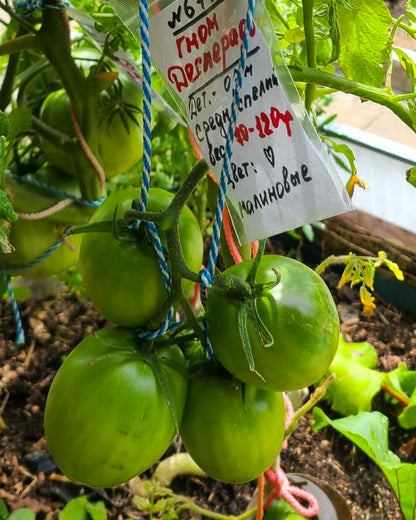 №6
гном
Десперадо
Дет.- 0,7м
среднеспелый
вес 90-120гр
цвет ♡
малиновые